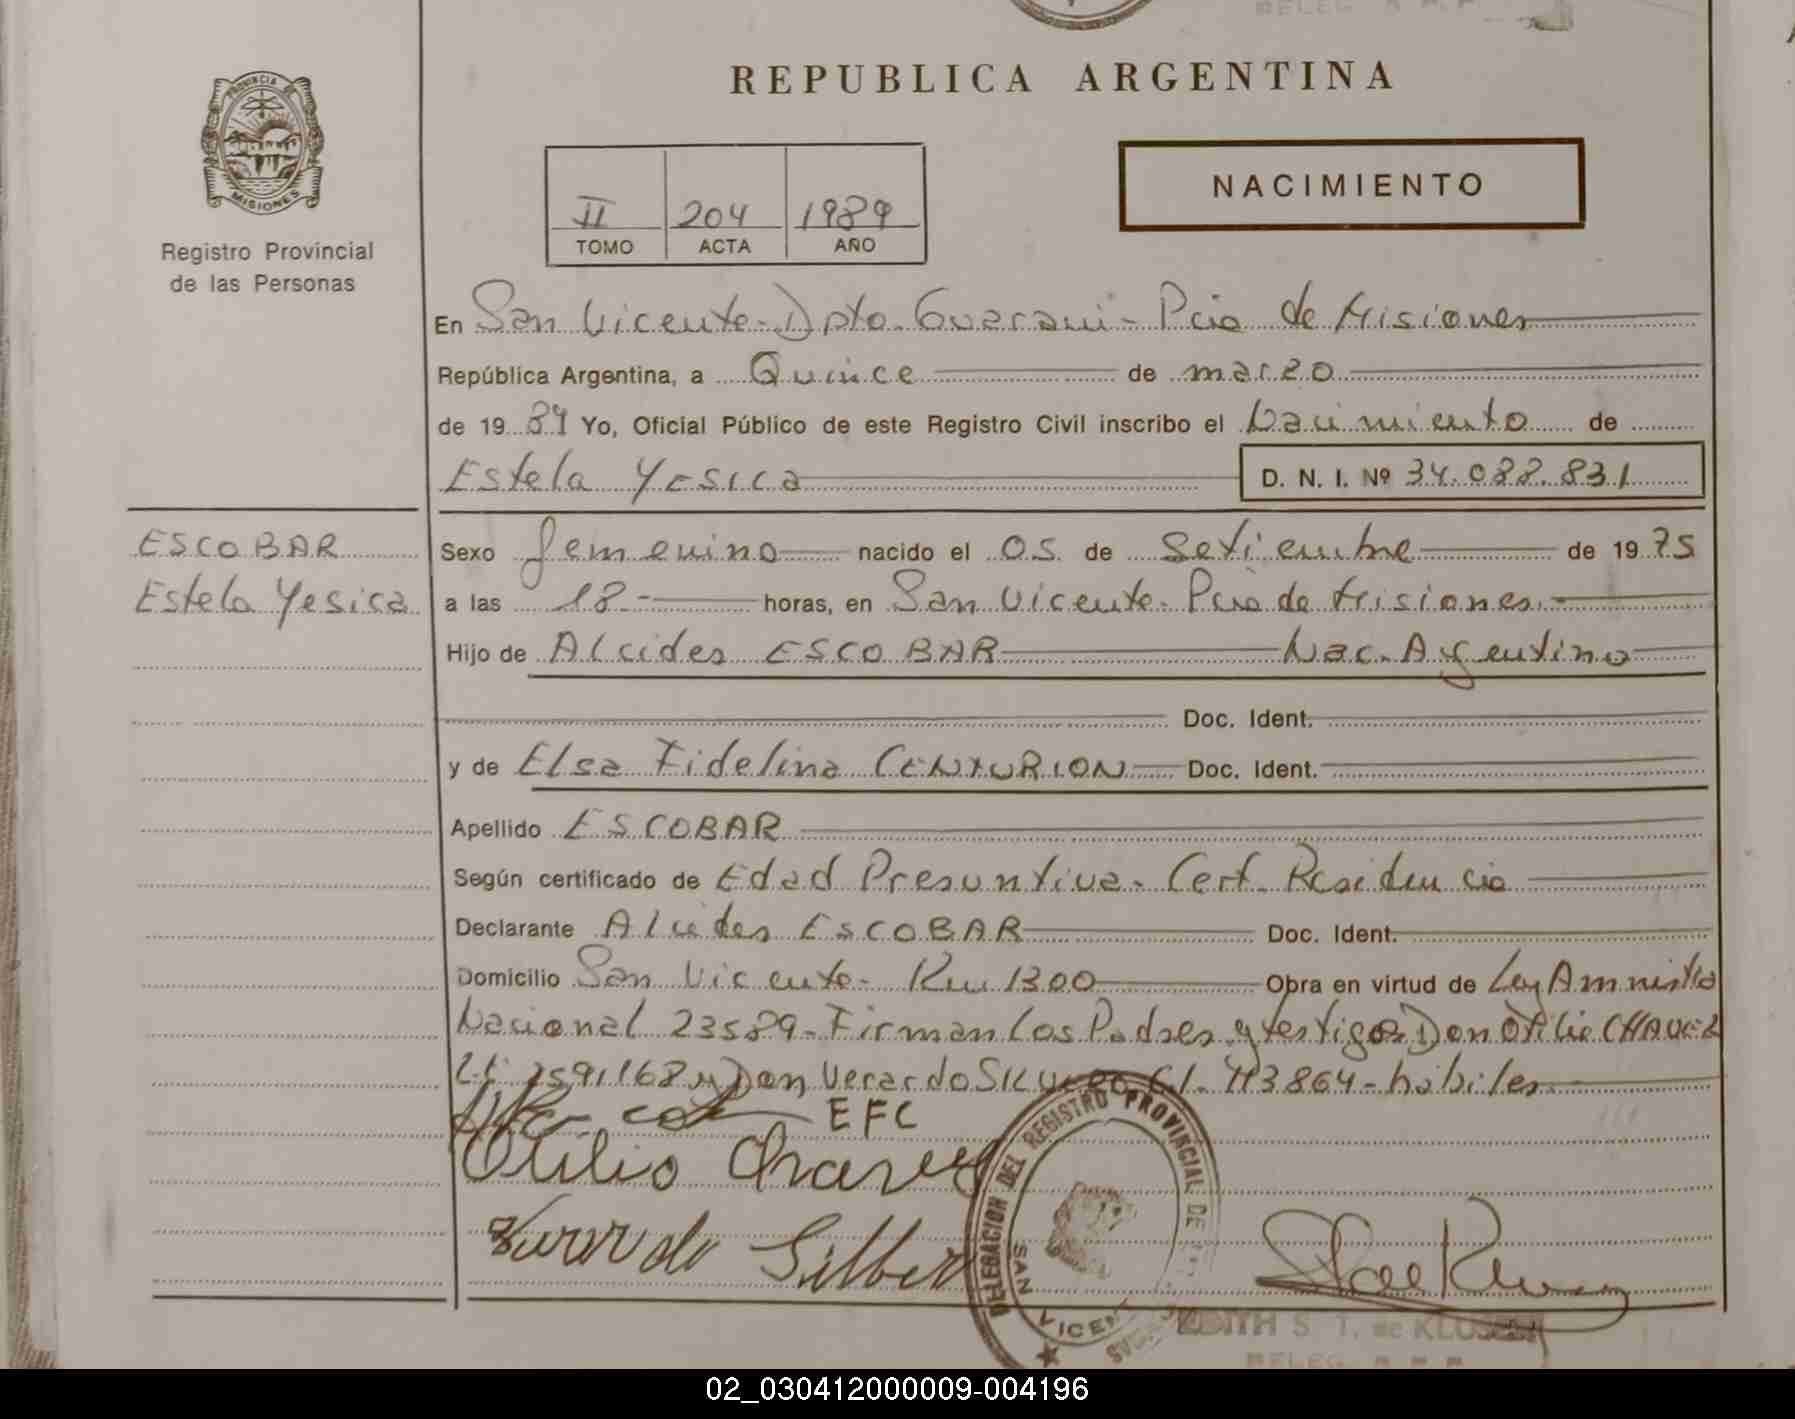 REPUBLICA ARGENTINA
PROVINCIA DE
MISIONES
Registro Provincial
de las Personas
II 204 1989
TOMO ACTA AÑO
NACIMIENTO
En San Vicente - Dpto. Guarani - Pcia de Misiones
República Argentina, a Quince de marzo
de 19 89 Yo, Oficial Público de este Registro Civil inscribo el Nacimiento de
Estela Yesica D. N. I. Nº 34.088.831
ESCOBAR
Estela Yesica
Sexo femenino nacido el 05 de Setiembre de 19 75
a las 18 - horas, en San Vicente - Pcia de Misiones -
Hijo de Alcides ESCOBAR Nac. Argentino
Doc. Ident.
y de Elsa Fidelina CENTURION Doc. Ident.
Apellido ESCOBAR
Según certificado de Edad Presuntiva - Cert. Residencia
Declarante Alcides ESCOBAR Doc. Ident.
Domicilio San Vicente - Km 1300 Obra en virtud de Ley Amnistia
Nacional 23589 - Firman Los Padres y testigos Don Otilio CHAVEZ
y Don Verardo C.I. 113864 - hábiles
EFC
Otilio Chavez
DELEGACION DEL REGISTRO PROVINCIAL DE
SAN VICENTE
EDITH S. T. de
DELEG.
02_030412000009-004196